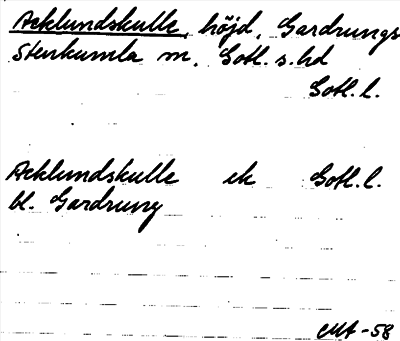 Acklundskulle, höjd, Gardrungs
Stenkumla sn, Gotl. s. hd
Gotl. l.
Acklundskulle ek Gotl. l.
bl. Gardrung
CMA -58